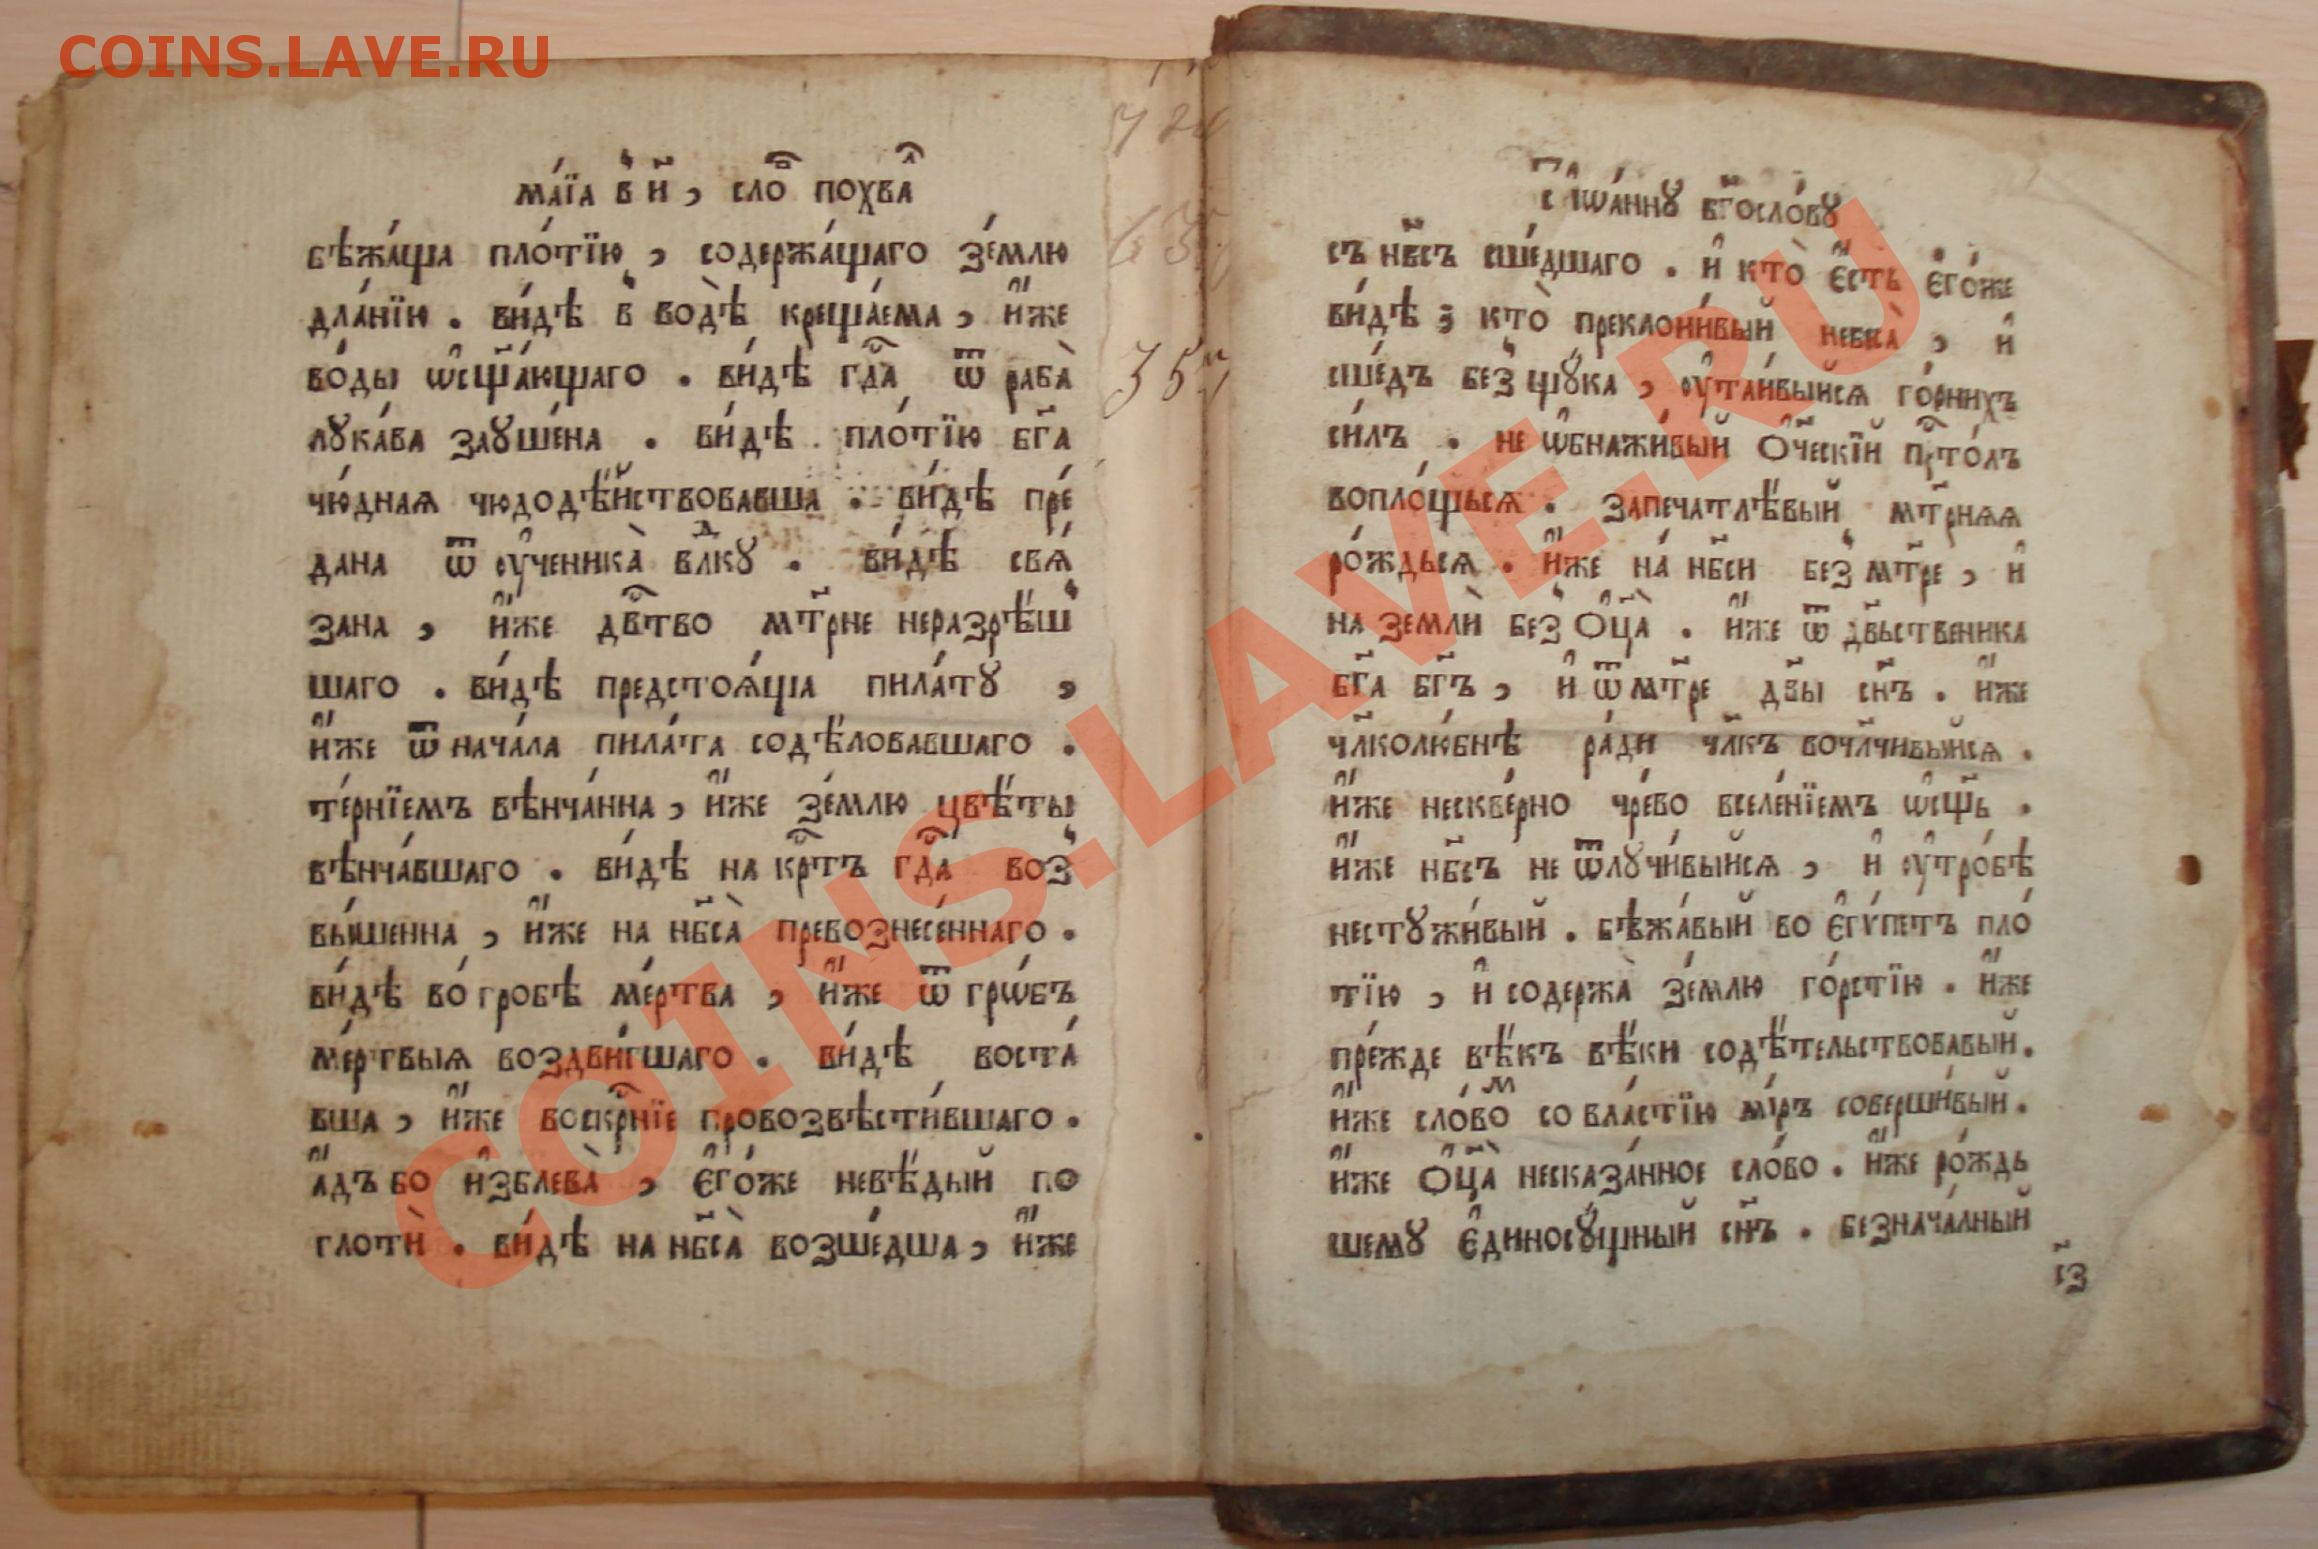 COINS.LAVE.RU
ма́їа в҆ и҃ , сло̑в похва̑л
бѣжа́ща пло́тїю , содержа́щаго зе́млю
дла́нїю . ви́дѣ в҆ водѣ̀ креща́ема , и҆́же
во́ды ѡ҆сщ҃а́ющаго . ви́дѣ гдⷭ҇а ѿ раба̀
лꙋка́ва заꙋше́на . ви́дѣ пло́тїю бг҃а
чю́дная чюдодѣ́йствовавша . ви́дѣ пре́
дана ѿ оу҆ченика̀ влⷣкꙋ . ви́дѣ свя́
зана , и҆́же двⷭ҇тво мт҃рне неразрѣ́ш
шаго . ви́дѣ предстоя́ща пила́тꙋ ,
и҆́же ѿ нача́ла пила́та содѣ́ловавшаго .
те́рнїемъ вѣнча́нна , и҆́же зе́млю цвѣ́ты
вѣнча́вшаго . ви́дѣ на крⷭ҇тъ гдⷭ҇а воз̾
вы́шенна , и҆́же на нб҃са̀ превознесе́ннаго .
ви́дѣ во́ гробѣ ме́ртва , и҆́же ѿ грѡ́бъ
ме́ртвыя воздви́гшаго . ви́дѣ воста́
вша , и҆́же воскрⷭ҇нїе провозвѣсти́вшаго .
а҆́дъ бо и҆зблева̀ , є҆го́же невѣ́дый по
глотѝ . ви́дѣ на нб҃са̀ возше́дша , и҆́же
7
3
35
ст҃. і҆ѡа́ннꙋ бг҃осло́вꙋ
съ нб҃съ сше́дшаго . и҆ кто̀ є҆́сть є҆го́же
ви́дѣ ; кто̀ преклони́вый небеса̀ , и҆
сше́дъ без̾ щꙋ́ка , оу҆таи́выйся го́рнихъ
си́лъ . не ѡ҆бнажи́вый ѻ҆ч҃ескїй прⷭ҇то́лъ
вопло́щься . запечатлѣ́вый мт҃рняя
ро́ждься . и҆́же на́ нб҃си без̾ мт҃ре , и҆
на землѝ без̾ ѻ҆ц҃а̀ . и҆́же ѿ дв҃ственика
бг҃а бг҃ъ , и҆ ѿ мт҃ре дв҃ы сн҃ъ . и҆́же
чл҃колю́бнѣ ра́ди чл҃къ вочл҃чивыйся .
и҆́же нескве́рно чре́во вселе́нїемъ ѡ҆сщ҃ь .
и҆́же нб҃съ не ѿлꙋчи́выйся , и҆ оу҆тро́бѣ
нестꙋжи́вый . бѣжа́вый во є҆гѵ́петъ пло́
тїю , и҆ содержа̀ зе́млю го́рстїю . и҆́же
пре́жде вѣ́къ вѣ́ки содѣ́тельствовавый .
и҆́же сло́воⷨ со вла́стїю мі́ръ соверши́вый .
и҆́же ѻ҆ц҃а̀ несказа́нное сло́во . и҆́же ро́ждь
шемꙋ є҆диносꙋ́щный сн҃ъ . безнача́лный
сз҃
COINS.LAVE.RU